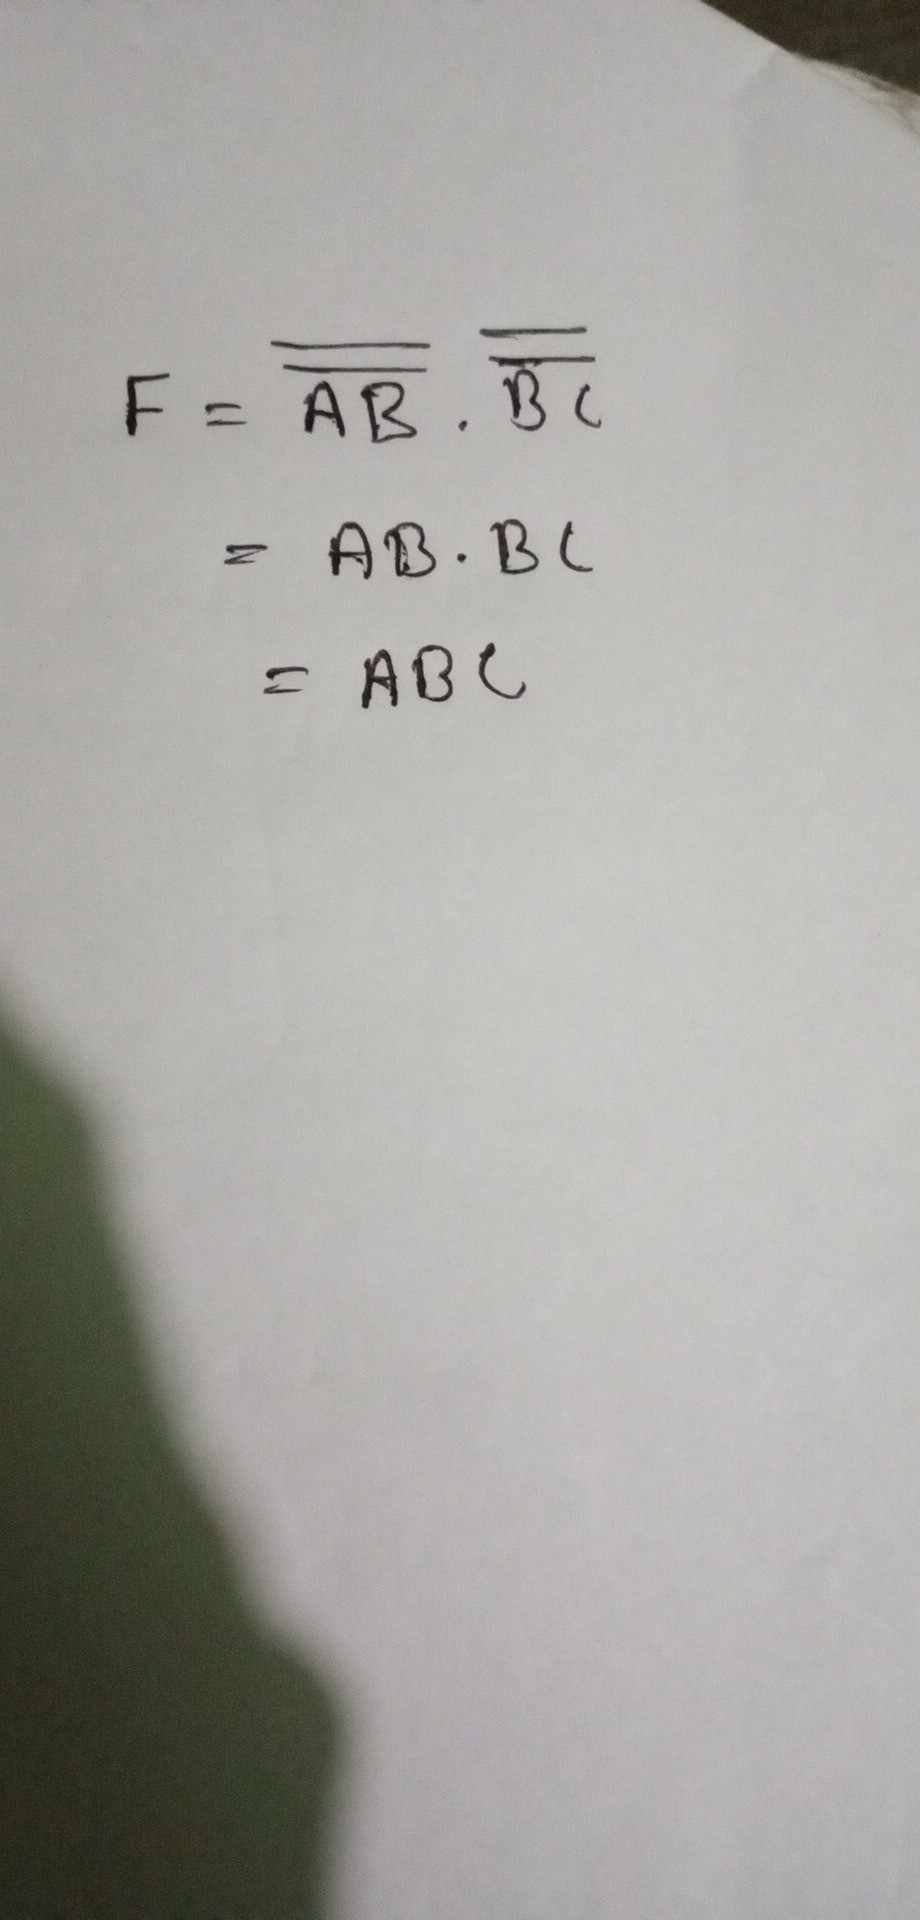 F = \overline{\overline{AB}} . \overline{\overline{BC}}
= AB . BC
= ABC